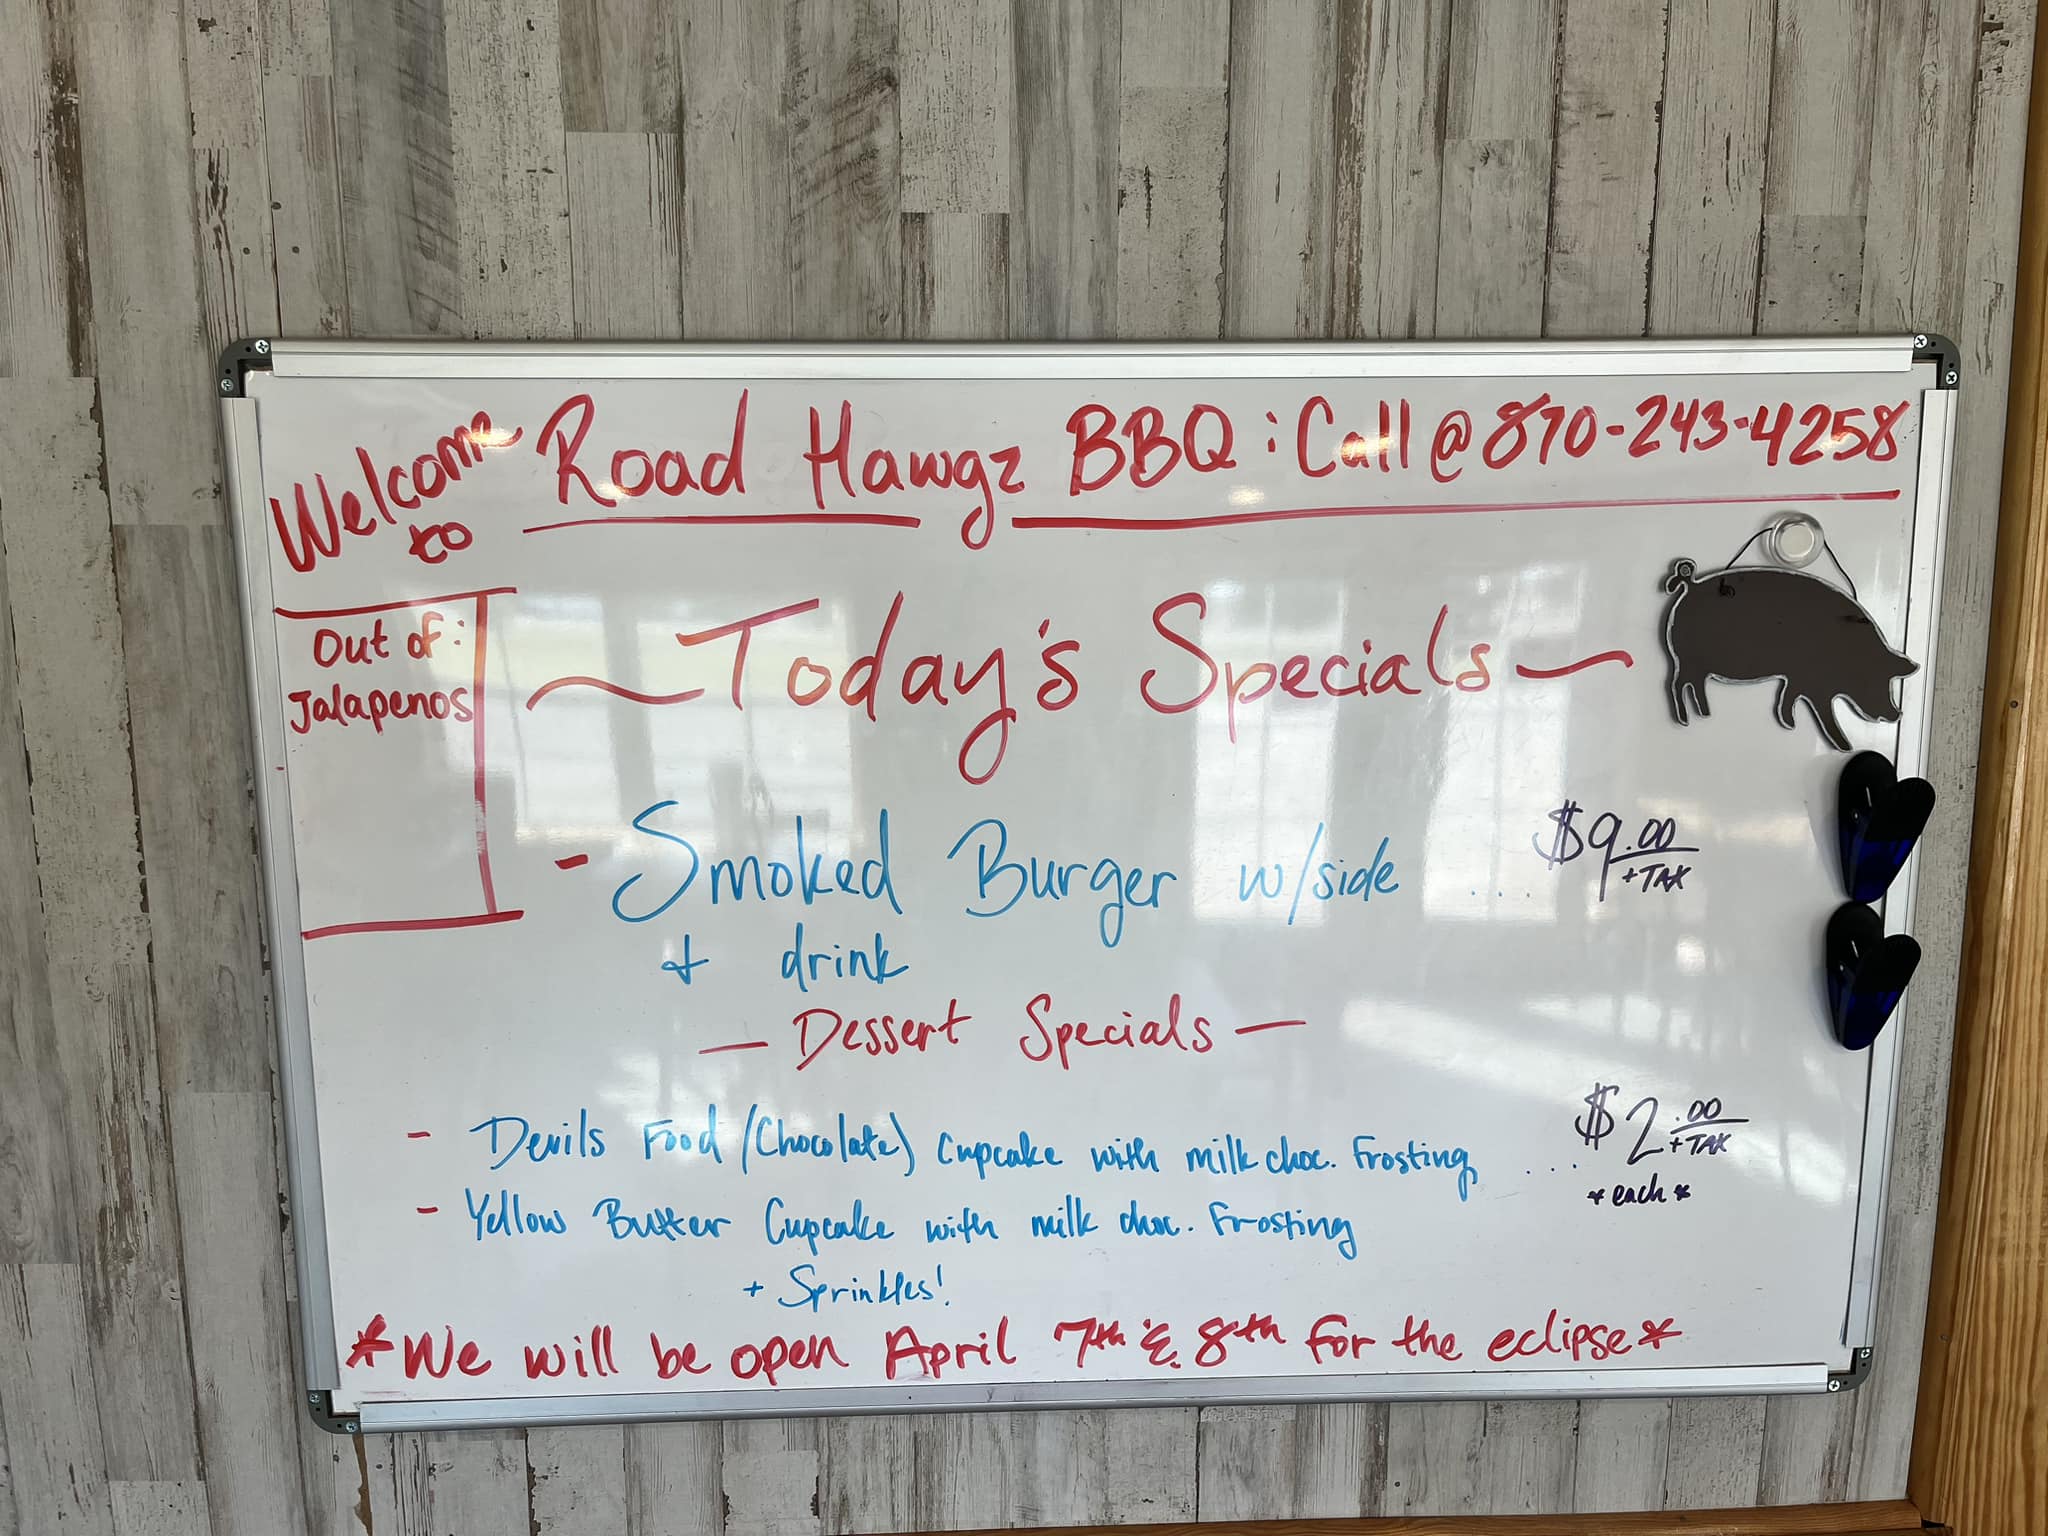 Welcome to Road Hawgz BBQ : Call @ 870-243-4258
Out of:
Jalapenos
~Today's Specials~
- Smoked Burger w/side .... $9.00 + TAX
+ drink
— Dessert Specials —
- Devils Food (Chocolate) Cupcake with milk choc. Frosting .... $2.00 + TAX
*each*
- Yellow Butter Cupcake with milk choc. Frosting
+ Sprinkles!
*We will be open April 7th & 8th for the eclipse*